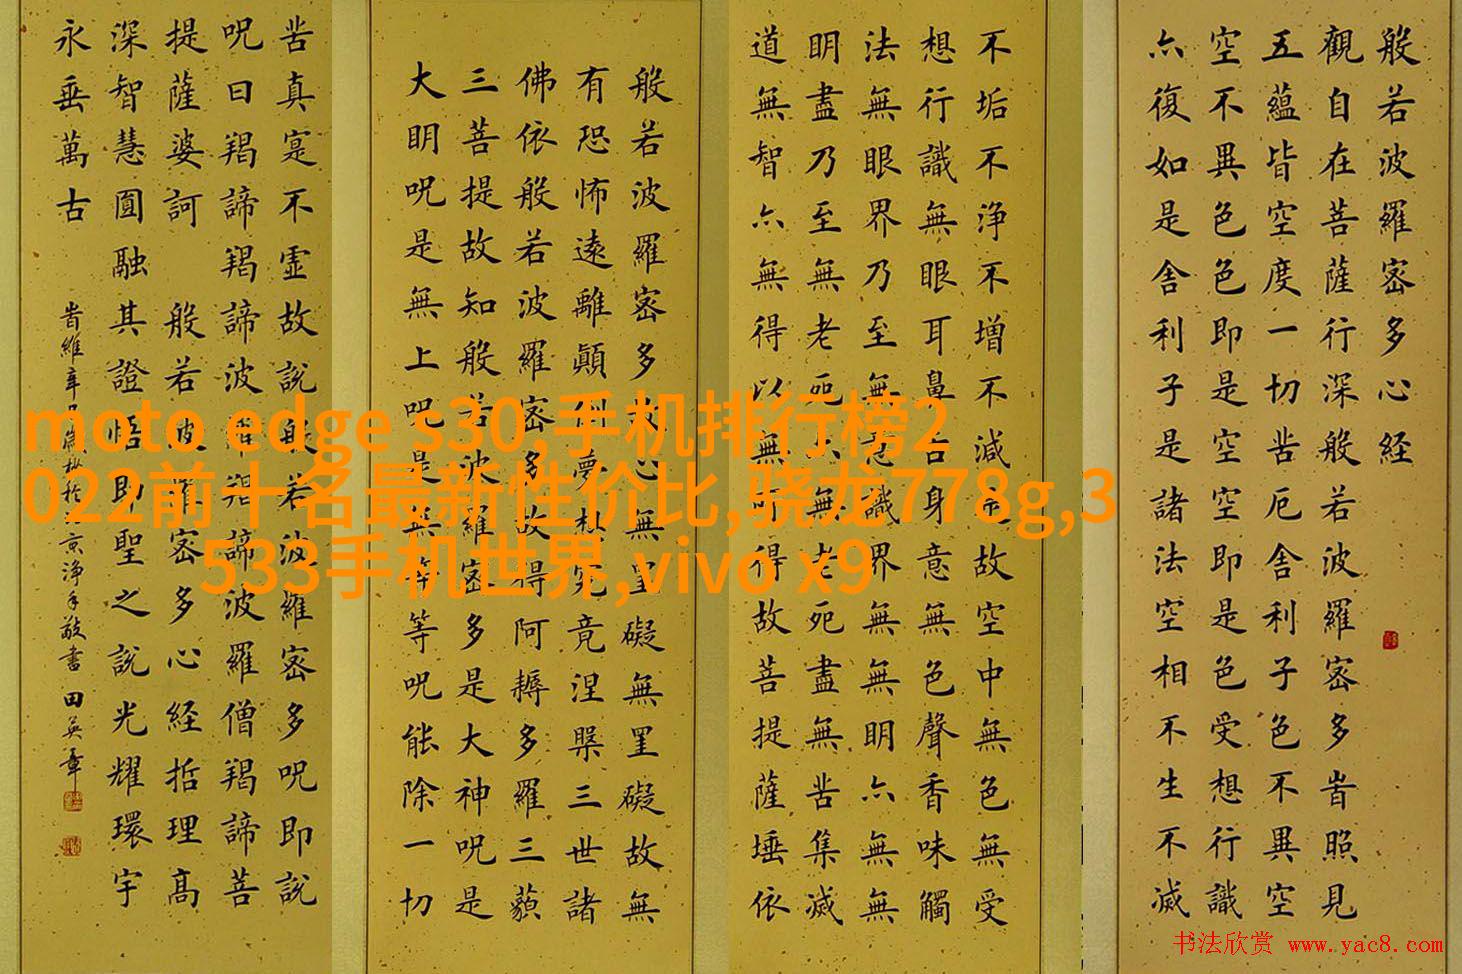 般若波羅密多心経
觀自在菩薩行深般若波羅密多旹照見
五蘊皆空度一切苦厄舍利子色不異空
空不異色色即是空空即是色受想行識
亦復如是舍利子是諸法空相不生不滅
不垢不淨不增不減是故空中無色無受
想行識無眼耳鼻舌身意無色聲香味觸
法無眼界乃至無意識界無無明亦無無
明盡乃至無老死亦無老死盡無苦集滅
道無智亦無得以無所得故菩提薩埵依
般若波羅密多故心無罣礙無罣礙故無
有恐怖遠離顛倒夢想究竟涅槃三世諸
佛依般若波羅密多故得阿耨多羅三藐
三菩提故知般若波羅密多是大神呪是
大明呪是無上呪是無等等呪能除一切
苦真寔不虛故說般若波羅密多呪即說
呪曰羯諦羯諦波羅羯諦波羅僧羯諦菩
提薩婆訶 般若波羅密多心経括理高
深智慧圓融其證悟即聖之說光耀環宇
永垂萬古 旹維辛 京淨手敬書 田英章
moto edge s30,手机排行榜2
022前十名最新性价比,骁龙778g,3
533手机世界,vivo x9
书法欣赏 www.yac8.com